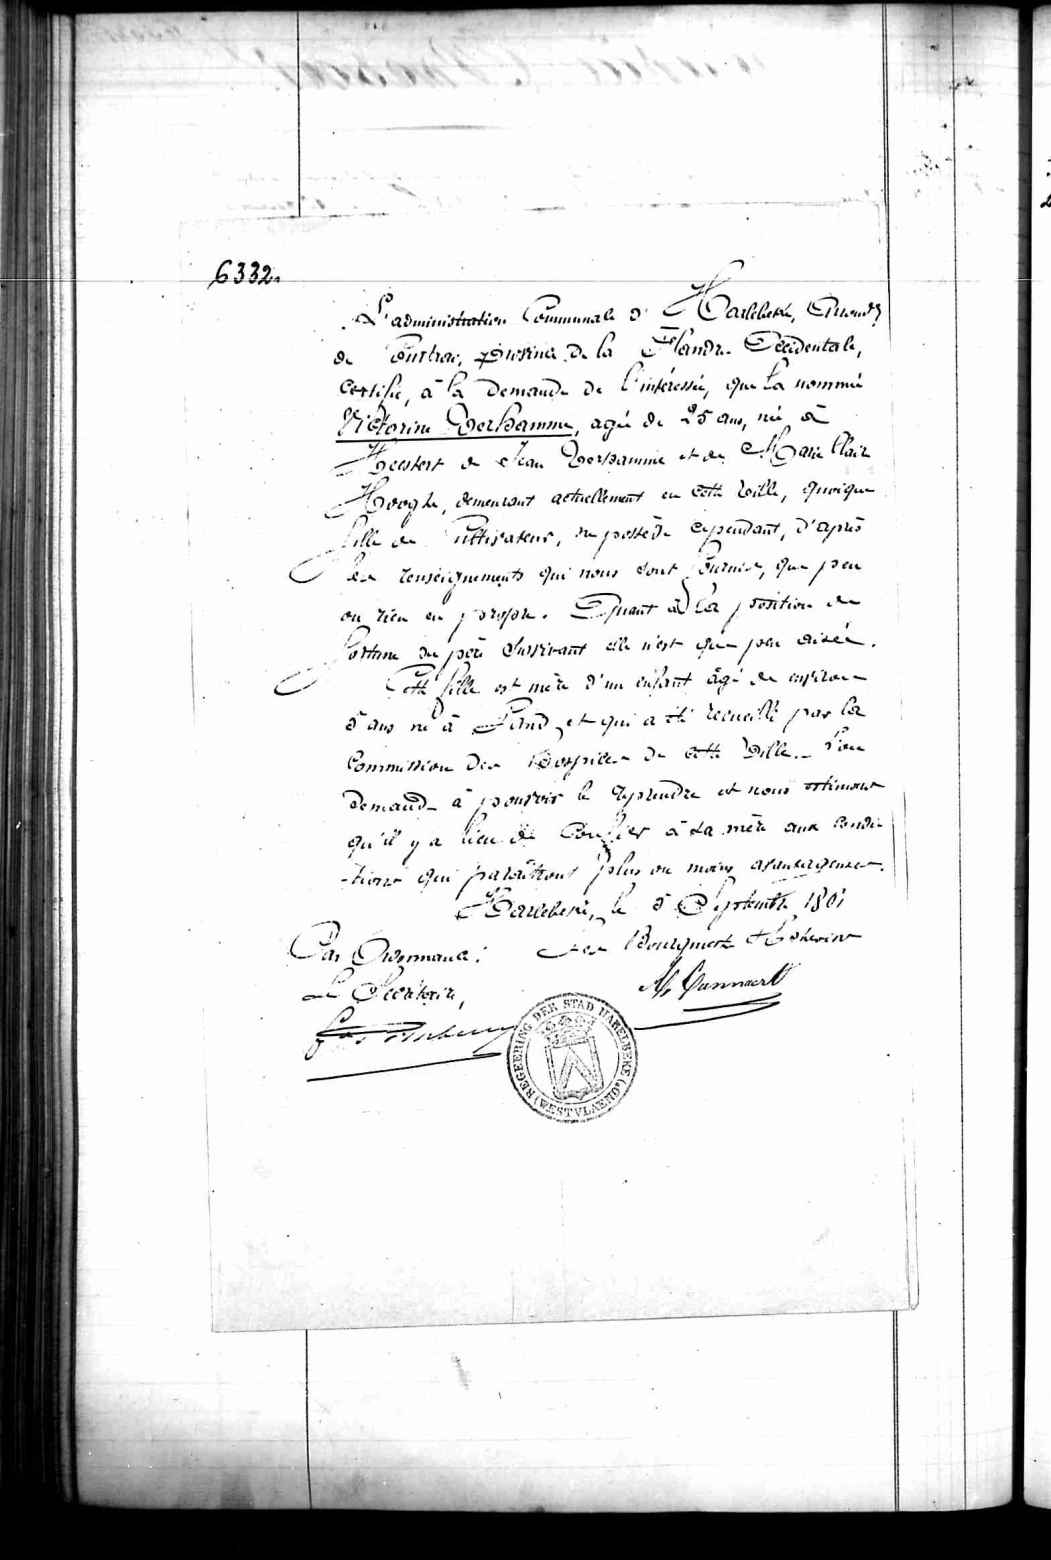 6332.
L'administration Communale d'Harlebeke, arrond.t
de Courtrai, province de la Flandre Occidentale,
certifie, à la demande de l'intéressée, que la nommée
Victorine Verhamme, agée de 25 ans, née à
Heestert de Jean Verhamme et de Marie Claire
Hooghe, demeurant actuellement en cette ville, quoique
fille de Cultivateur, ne possède cependant, d'après
les renseignements qui nous sont fournis, que peu
ou rien en propre. Quant à la position de
fortune du père survivant elle n'est que peu aisée.
Cette fille est mère d'un enfant âgé de environ
5 ans né à Gand, et qui a été recueilli par la
Commission des Hospices de cette Ville. L'on
demande à pouvoir le reprendre et nous estimons
qu'il y a lieu de confier à sa mère aux condi-
-tions qui paraîtront plus ou moins avantageuses.
Harlebeke, le 5 Septembre 1861
Par Ordonnance: Les Bourgmestre et Echevins
Le Secrétaire,
REGEERING DER STAD HARELBEKE (WESTVLAENDEREN)